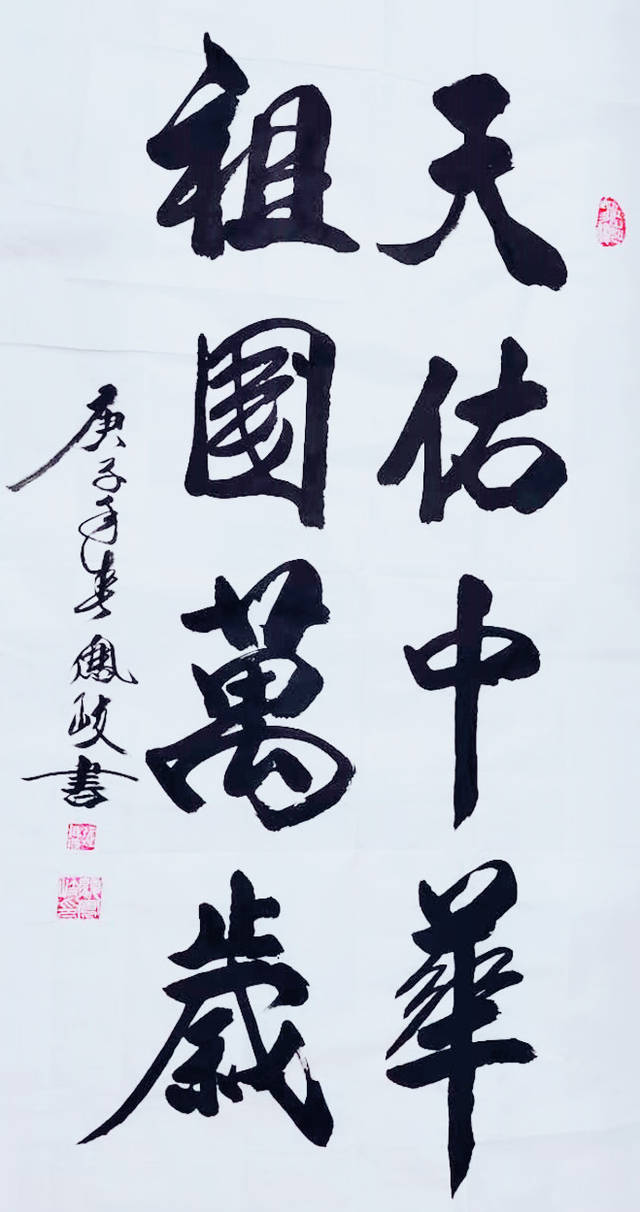 天佑中華
祖國萬歲
庚子年春鳳岐書